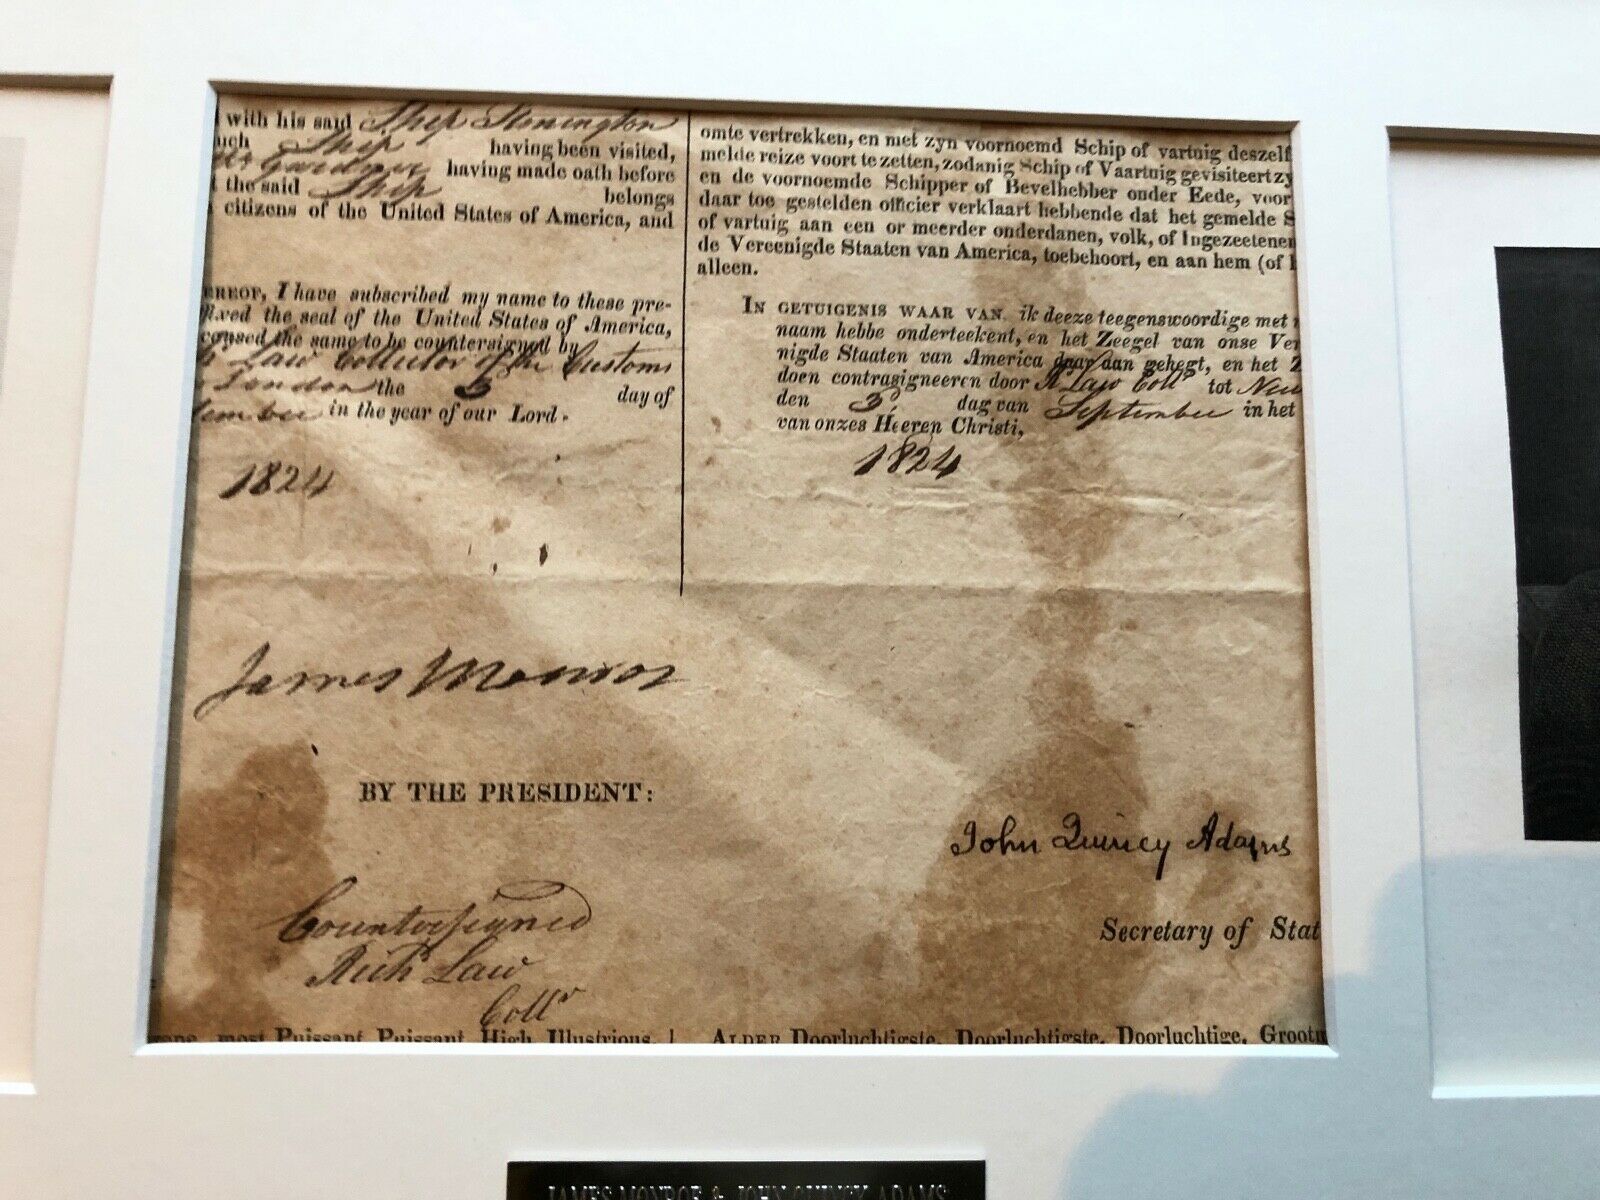 with his said Ship Stonington
Ship having been visited,
Gardner having made oath before
the said Ship belongs
citizens of the United States of America, and
I have subscribed my name to these pre-
the seal of the United States of America,
the same to be countersigned by
Law Collector of the Customs
London the 3 day of
in the year of our Lord.
1824
omte vertrekken, en met zyn voornoemd Schip of vartuig deszelf
melde reize voort te zetten, zodanig Schip of Vaartuig gevisiteert zy
en de voornoemde Schipper of Bevelhebber onder Eede, voor
daar toe gestelden officier verklaart hebbende dat het gemelde S
of vartuig aan een or meerder onderdanen, volk, of Ingezeetenen
de Vereenigde Staaten van America, toebehoort, en aan hem (of
alleen.
IN GETUIGENIS WAAR VAN, ik deeze teegenswoordige met
naam hebbe onderteekent, en het Zeegel van onse Ver
nigde Staaten van America daar aan gehegt, en het Z
doen contrasigneeren door R Law Collr tot New
den 3d dag van September in het
van onzes Heeren Christi,
1824
James Monroe
BY THE PRESIDENT:
John Quincy Adams
Secretary of Stat
Countersigned
Richd Law
Collr
most Puissant, Puissant, High, Illustrious,
ALDER Doorluchtigste, Doorluchtigste, Doorluchtige, Grootm
JAMES MONROE & JOHN QUINCY ADAMS